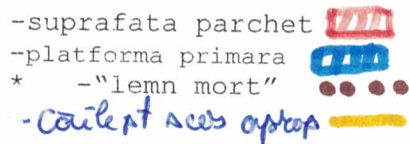 -suprafata parchet
-platforma primara
* -"lemn mort"
-Căile pt acces aprop